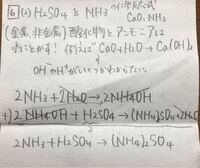 6 (2) H₂SO₄ と NH₃ の化学反応式
CaO, NH₃
(金属, 非金属) 酸化物とアンモニアは
例えば CaO+H₂O → Ca(OH)₂
OH⁻やH⁺がいくつかわからない。
2NH₃ + 2H₂O → 2NH₄OH
+) 2NH₄OH + H₂SO₄ → (NH₄)₂SO₄ + 2H₂O
2NH₃ + H₂SO₄ → (NH₄)₂SO₄